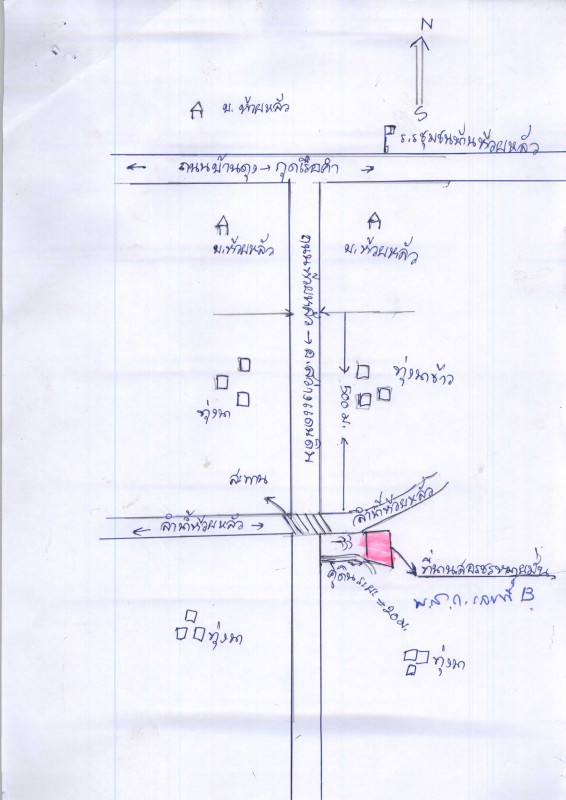 N
S
บ. ห้วยหลัว
ร.ร ชุมชนบ้านห้วยหลัว
ถนนบ้านดุง → กุดเรือคำ
บ.ห้วยหลัว
บ.ห้วยหลัว
ถนนห้วยหลัว → อ.สว่างแดนดิน
ทุ่งนาข้าว
ทุ่งนา
500 ม.
สะพาน
ลำน้ำห้วยหลัว
ลำน้ำห้วยหลัว
ที่นา
คูดิน ระยะ = 20 ม.
B.
ทุ่งนา
ทุ่งนา